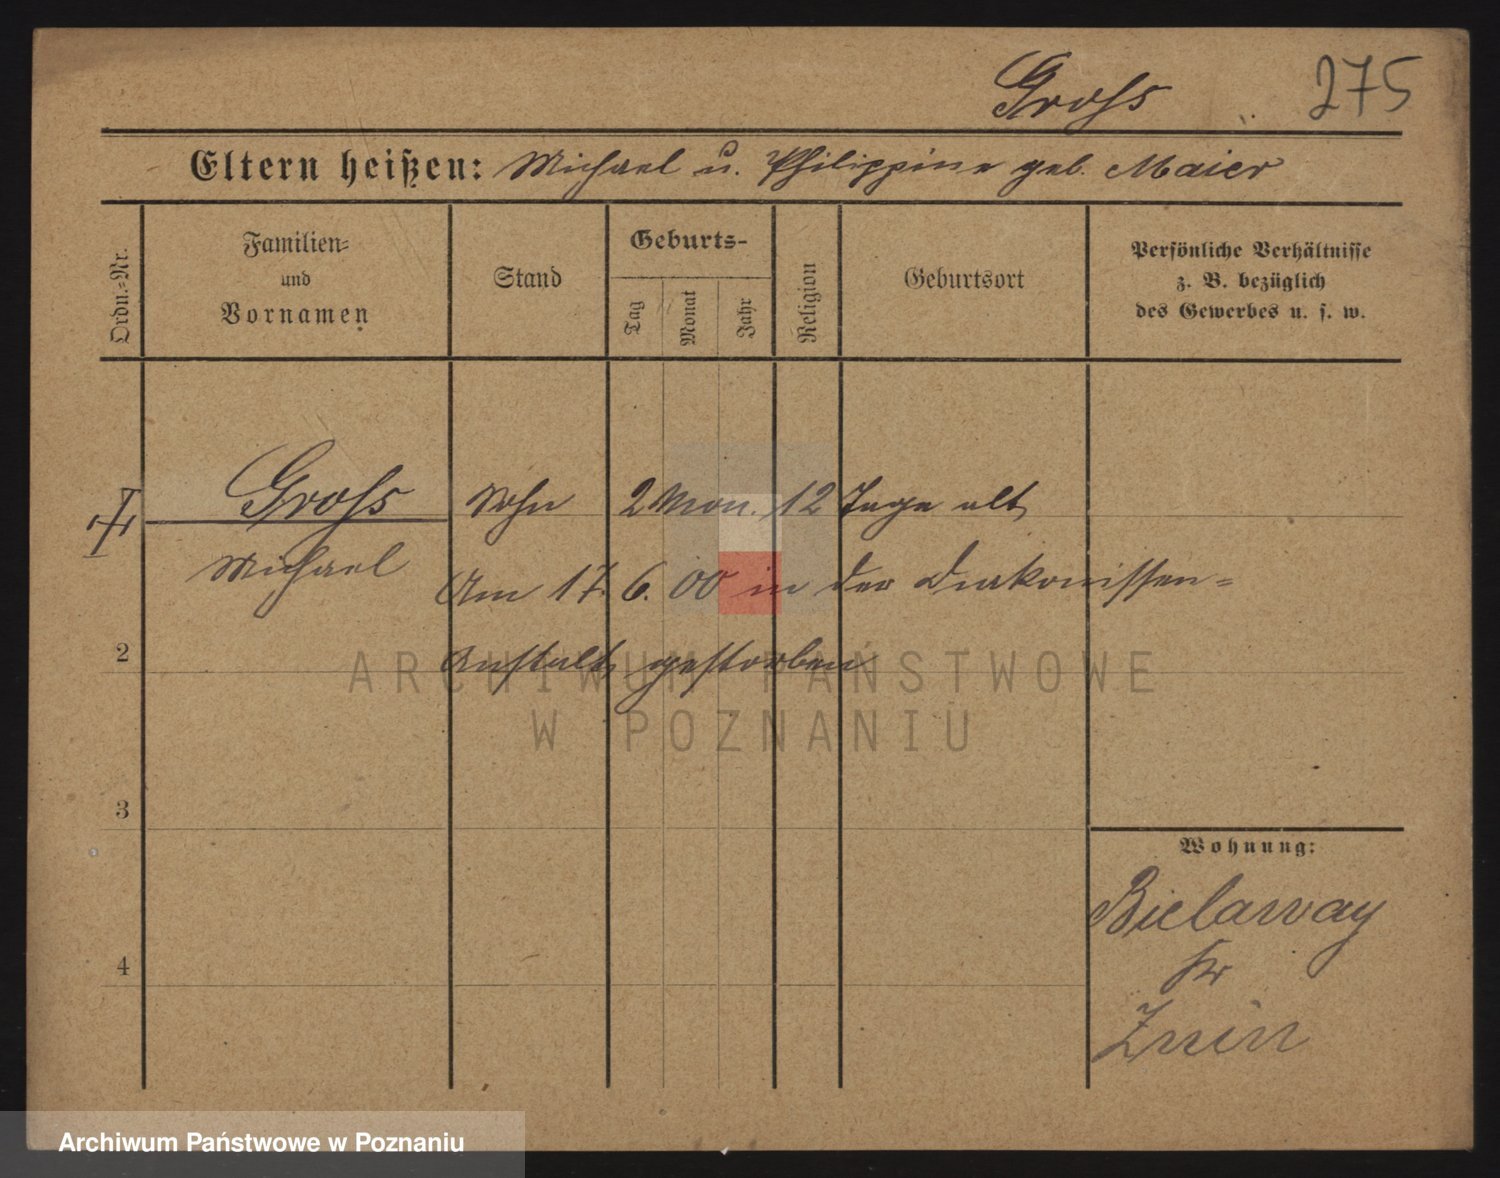 Gross 275
Eltern heißen: Michael u. Philippine geb. Maier
Ordn.=Nr.
Familien=
und
Vornamen
Stand
Geburts-
Tag
Monat
Jahr
Religion
Geburtsort
Persönliche Verhältnisse
z. B. bezüglich
des Gewerbes u. s. w.
Gross Sohn 2 Mon. 12 Tage alt
Michael Am 17. 6. 00 in der Diakonissen=
2 Anstalt gestorben
ARCHIWUM PAŃSTWOWE
W POZNANIU
3
Wohnung:
Bielaway
Kr
4
Znin
Archiwum Państwowe w Poznaniu